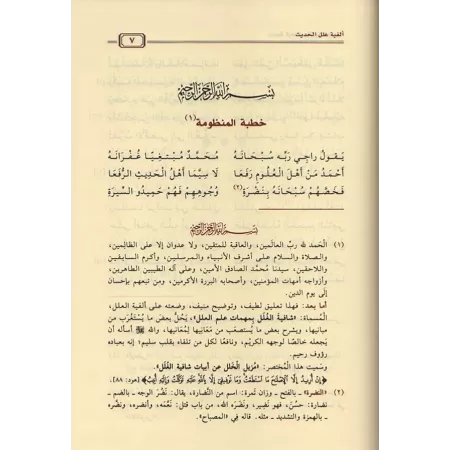 ألفية علل الحديث
٧
بسم الله الرحمن الرحيم
خطبة المنظومة (١)
يَقُولُ رَاجِي رَبِّهِ سُبْحَانَهُ مُحَمَّدٌ مُبْتَغِيًا غُفْرَانَهُ
أَحْمَدُ مَنْ أَهْلَ الْعُلُومِ رَفَعَا لَا سِيَّمَا أَهْلُ الْحَدِيثِ الرُّفَعَا
فَخَصَّهُمْ سُبْحَانَهُ بِنَضْرَةِ (٢) وُجُوهِهِمْ فَهُمْ حَمِيدُو السِّيرَةِ
بسم الله الرحمن الرحيم
(١) الحمد لله ربّ العالمين، والعاقبة للمتقين، ولا عدوان إلا على الظالمين،
والصلاة والسلام على أشرف الأنبياء والمرسلين، وأكرم السابقين
واللاحقين، سيدنا محمَّد الصادق الأمين، وعلى آله الطيبين الطاهرين،
وأزواجه أمهات المؤمنين، وأصحابه البررة الأكرمين، ومن تبعهم بإحسان
إلى يوم الدين.
أما بعد: فهذا تعليق لطيف، وتوضيح منيف، وضعته على ألفية العلل،
المسماة: «شافية الغُلَل بمهمات علم العلل»، يَحُلُّ بعض ما يُستغرَب من
مبانيها، ويشرح بعض ما يُستصعَب من مَعَانِيها لِمُعَانِيها، والله أسأله أن
يجعله خالصًا لوجهه الكريم، ونافعًا لكل من تلقاه بقلب سليم؛ إنه بعباده
رؤوف رحيم.
وسميت هذا المُختصر: «مُزيل الخَلل عن أبيات شافية الغُلَل».
﴿إِنْ أُرِيدُ إِلَّا الْإِصْلَاحَ مَا اسْتَطَعْتُ وَمَا تَوْفِيقِي إِلَّا بِاللَّهِ عَلَيْهِ تَوَكَّلْتُ وَإِلَيْهِ أُنِيبُ﴾ [هود: ٨٨].
(٢) «النضرة» ـ بالفتح ـ وزان تَمرة: اسم من النَّضارة، يقال: نَضُرَ الوجه ـ بالضم ـ
نضارة: حسُنَ، فهو نَضِير، ونَضَره الله، من باب قتل: نَعَّمَه، وأنضره، ونضّره
ـ بالهمزة والتشديد ـ مثله. قاله في «المصباح».